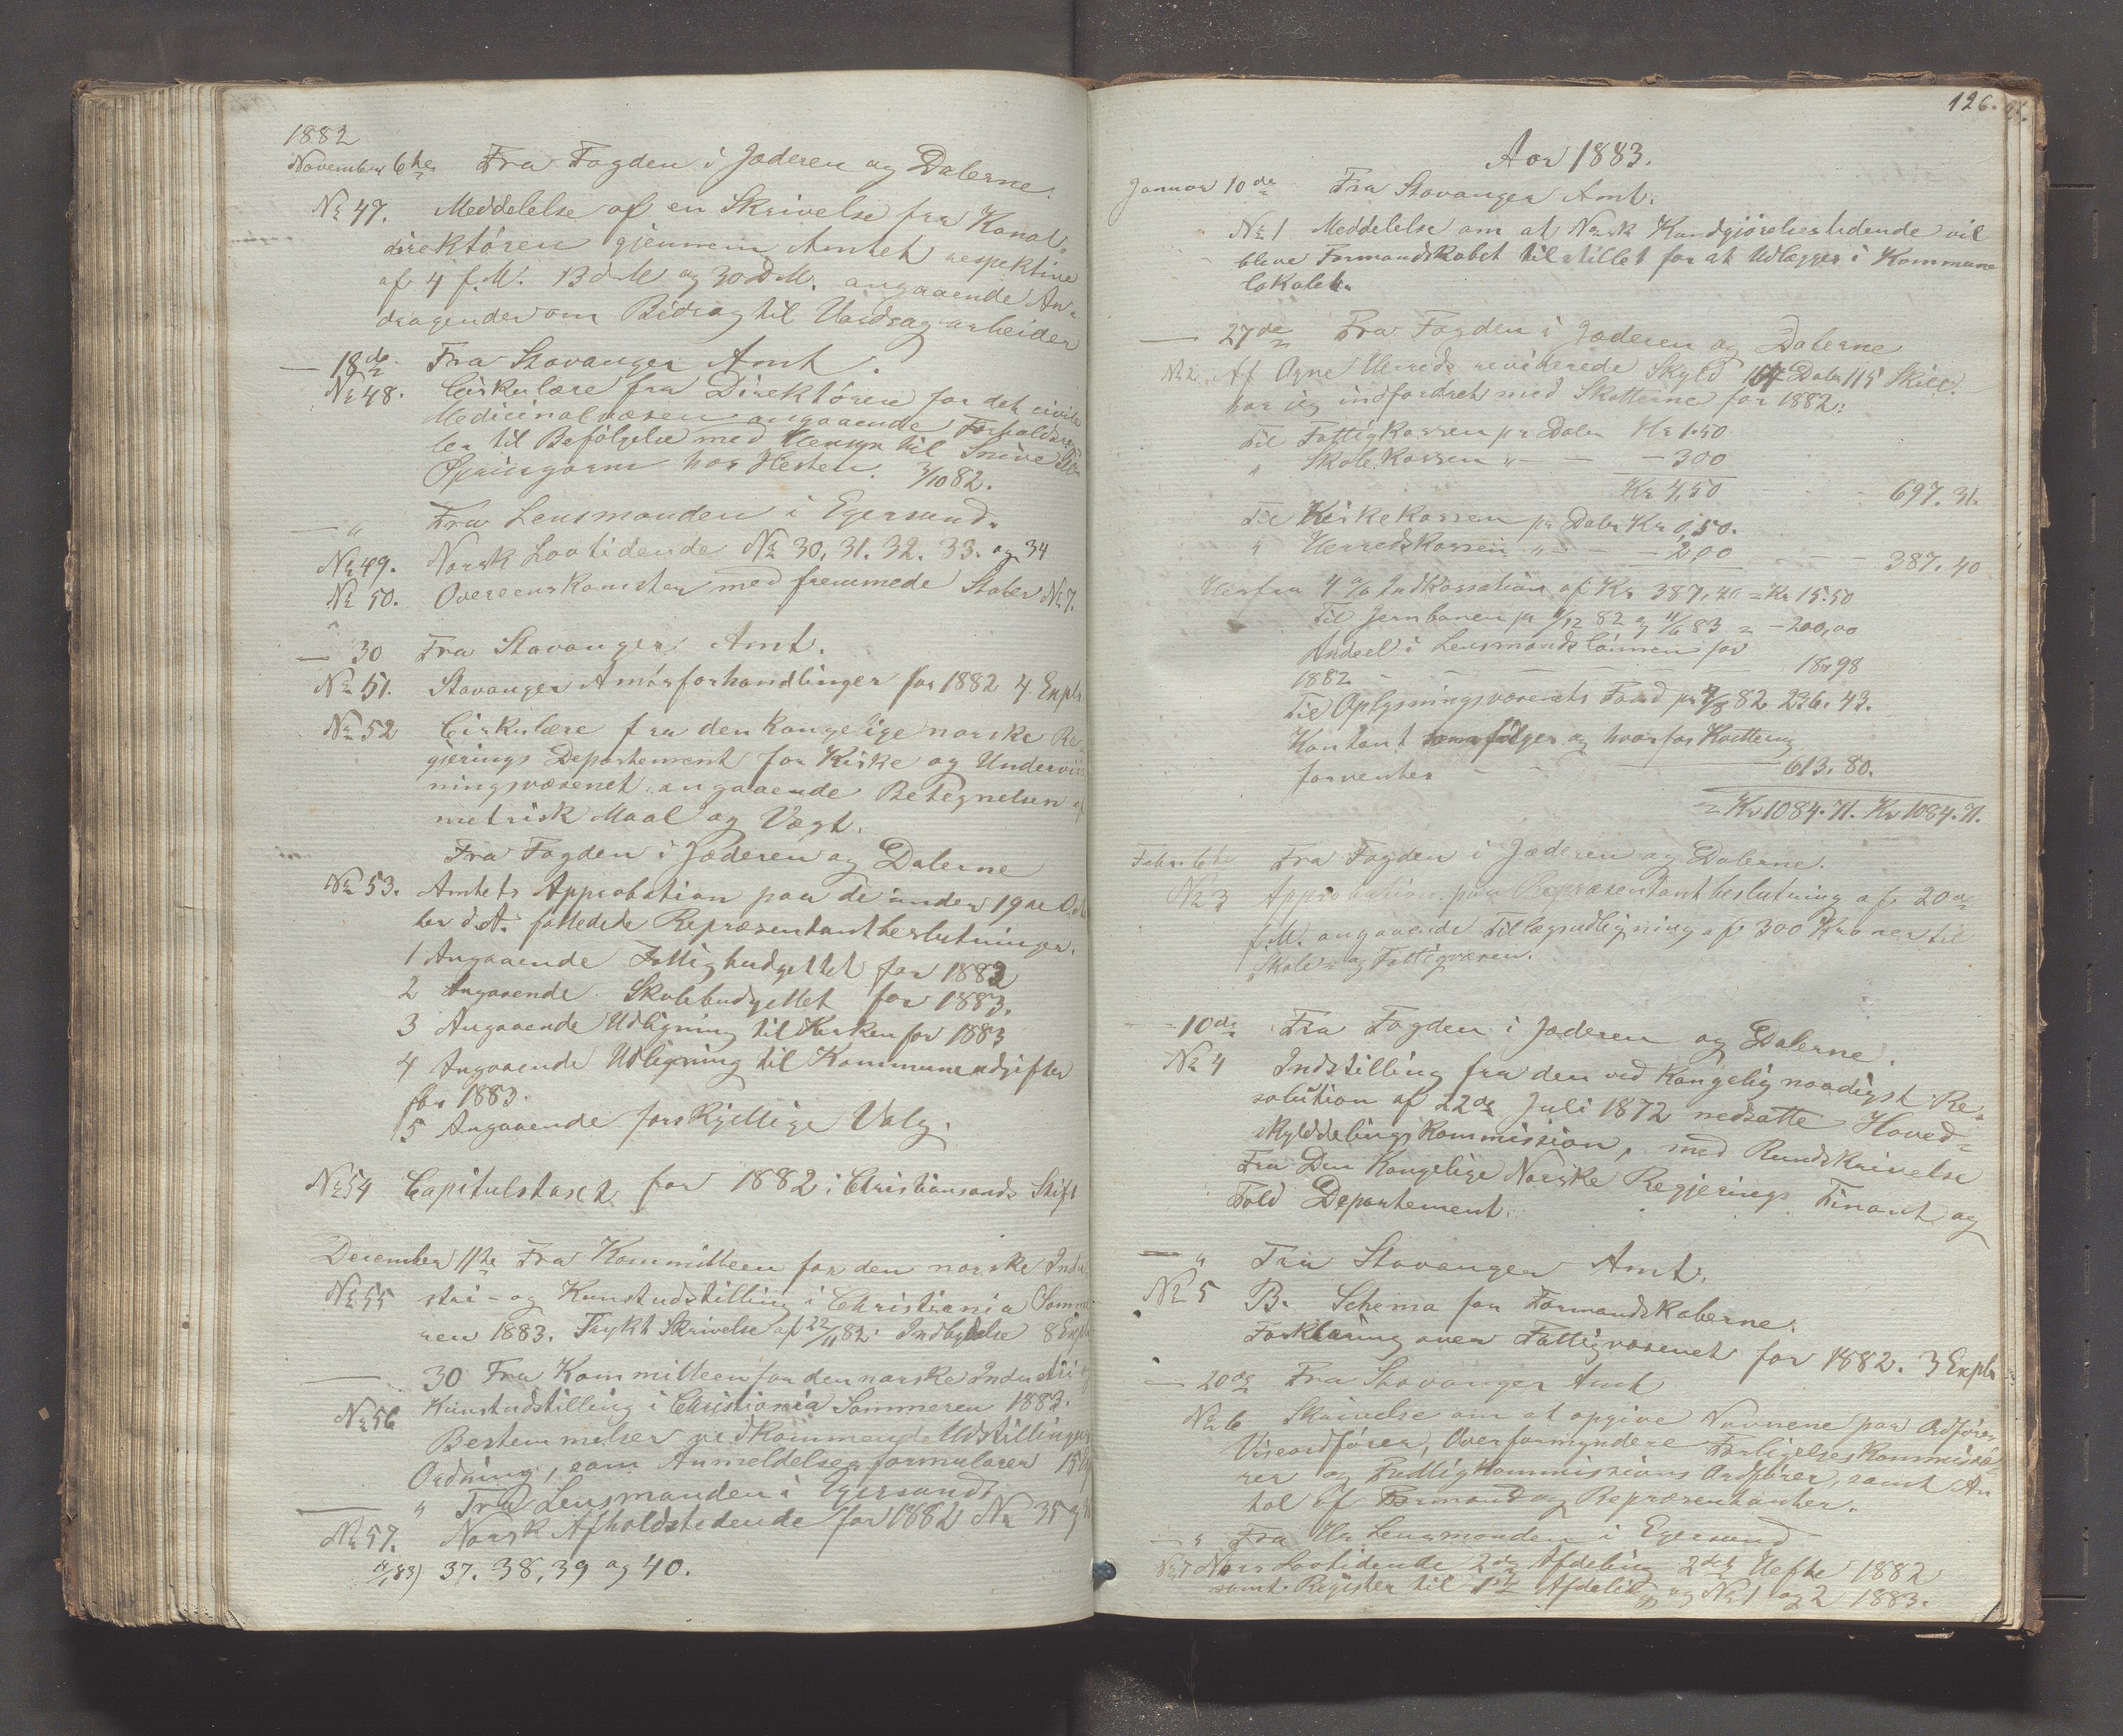 1882
November 6te Fra Fogden i Jæderen og Dalerne.
No 47. Meddelelse af en Skrivelse fra Kanal-
direktören gjennem Amtet respektive
af 4 f. M. 13 d M og 30 d M. angaaende An-
dragender om Bidrag til Vasdragarbeider
— 18de Fra Stavanger Amt.
No 48. Cirkulære fra Direktören for det civile
Medicinalvæsen angaaende Forholdsreg
ler til Befölgelse med Hensyn til Snive
Springorm hos Hesten. 3/10 82.
— " Fra Lensmanden i Egersund.
No 49. Norsk Lovtidende No 30, 31. 32. 33. og 34
No 50. Overenskomster med fremmede Stater No 7.
— 30 Fra Stavanger Amt.
No 51. Stavanger Amtsforhandlinger for 1882 4 Expl
No 52 Cirkulære fra den kongelige norske Re
gjerings Departement for Kirke og Underviis
ningsvæsenet angaaende Betegnelsen af
metrisk Maal og Vægt.
Fra Fogden i Jæderen og Dalerne
No 53. Amtets Approbation paa de under 19de Octo
ber d. A. fattede Repræsentantbeslutninger.
1 Angaaende Fattigbudgettet for 1883
2 Angaaende Skolebudgettet for 1883.
3 Angaaende Udligning til Kirken for 1883
4 Angaaende Udligning til Kommuneudgifter
for 1883.
5 Angaaende forskjellige Valg.
No 54 Capitulstaxt for 1882 i Christiansands Stift
December 11te Fra Kommitteen for den norske Indu
No 55 stri- og Kunstudstilling i Christiania Somme
ren 1883. Trykt Skrivelse af 22/11 82. Indbydelse 8 Expl
— 30 Fra Kommitteen for den norske Industri og
No 56 Kunstudstilling i Christiania Sommeren 1883.
Bestemmelser vedkommende Udstillingens
Ordning, som Anmeldelsesformularer 15
— " Fra Lensmanden i Egersund
No 57. Norsk Afholdstidende for 1882 No 35 og 36
37. 38, 39 og 40.
126.
Aar 1883.
Januar 10de Fra Stavanger Amt.
No 1 Meddelelse om at Norsk Kundgjörelsestidende vil
blive Formandskabet tilstillet for at Udlægges i Kommune
lokalet.
— 27de Fra Fogden i Jæderen og Dalerne
No 2. Af Ogne Herreds reviderede Skyld 154 Daler 115 Skill.
har jeg indfordret med Skatterne for 1882:
Til Fattigkassen pr Daler Kr 1.50
" Skolekassen " — — 300
Kr 4,50 - - 697.31.
Til Kirkekassen pr Daler Kr 0,50.
" Herredskassen " — — 2,00 — — — 387.40
Herfra 4 % Indkassation af Kr 387,40 = Kr 15.50
Til Jernbanen pr 11/12 82 og 11/6 83 = — 200,00
Andeel i Lensmandslönnen for
1882 - - 18,98
Til Oplysningsvæsenets Fond pr 82 236.43.
Kontant som fölger og hvorfor Kvittering
forventes — — — — 613.80.
= Kr 1084.71. Kr 1084.71.
Febr. 6te Fra Fogden i Jæderen og Dalerne.
No 3 Approbation paa Repræsentantbeslutning af 20de
f. M. angaaende Tillægsudligning af 300 Kroner til
Skole- og Fattigvæsen.
— 10de Fra Fogden i Jæderen og Dalerne.
No 4 Indstilling fra den ved Kongelig naadigst Re-
solution af 22de Juli 1872 nedsatte Hoved-
skylddelings Kommission, med Rundskrivelse
Fra Den Kongelige Norske Regjerings Finant og
Told Departement.
— " Fra Stavanger Amt.
No 5 B. Schema for Formandskaberne.
Forklaring over Fattigvæsenet for 1882. 3 Expl
— 20de Fra Stavanger Amt
No 6 Skrivelse om at opgive Navnene paa Ordförer
Viseordförer, Overformyndere Forligelseskommissæ-
rer og Fattigkommissions Ordförer, samt An
tal af Formænd og Repræsentanter.
— " Fra Hr Lensmanden i Egersund
No 7 Norsk Lovtidende 2den Afdeling 2det Hefte 1882
samt Register til 1ste Afdeling og No 1 og 2 1883.